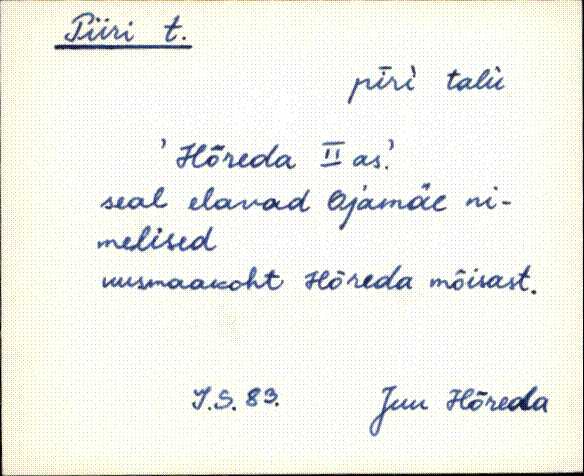 Piiri t.
pīri̬ talu
' Hõreda II as.'
seal elavad Ojamäe ni-
melised
uusmaakoht Hõreda mõisast.
I.S. 83. Juu Hõreda